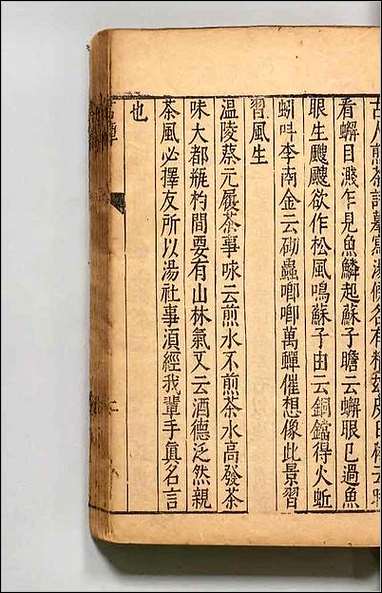 古人煎茶詩摹寫湯候各有精妙皮日休云時
看蠏目濺乍見魚鱗起蘇子瞻云蠏眼已過魚
眼生颼颼欲作松風鳴蘇子由云銅鐺得火蚯
蚓呌李南金云砌蟲唧唧萬蟬催想像此景習
習風生
温陵蔡元履茶事咏云煎水不煎茶水高發茶
味大都瓶杓間要有山林氣又云酒德泛然親
茶風必擇友所以湯社事須經我輩手真名言
也